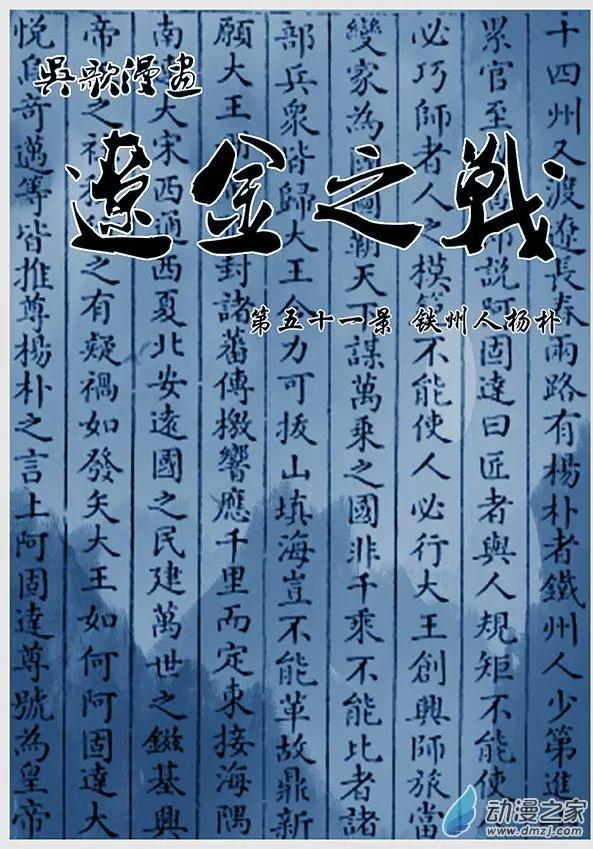 吳歌漫畫
遼金之戰
第五十一景 铁州人杨朴
十四州又渡遼長春兩路有楊朴者鐵州人少第進
累官至郎說阿固達曰匠者與人規矩不能使
必巧師者人之模不能使人必行大王創興師旅當
變家為國圖天下謀萬乘之國非千乘不能比者諸
部兵衆皆歸大王今力可拔山填海豈不能革故鼎新
願大王封諸蕃傳檄響應千里而定東接海隅
南連大宋西通西夏北安遠國之民建萬世之鎡基興
帝之之有疑禍如發矢大王如何阿固達大
悅烏奇邁等皆推尊楊朴之言上阿固達尊號為皇帝
动漫之家
www.dmzj.com